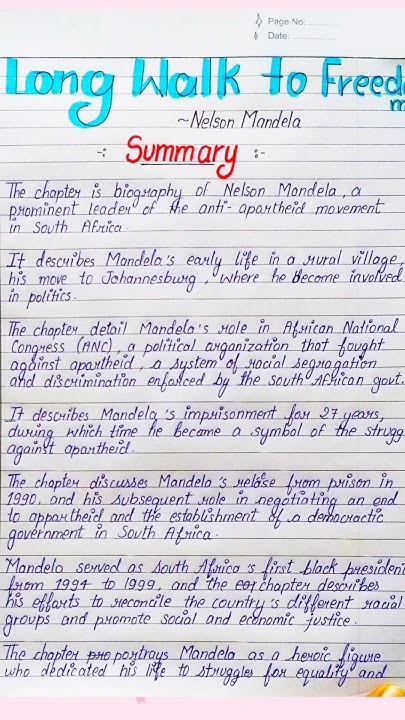 Page No: ..............
Date: ..................
Long Walk to Freed
m
~Nelson Mandela
-: Summary :-
The chapter is biography of Nelson Mandela, a
prominent leader of the anti-apartheid movement
in South Africa.
It describes Mandela's early life in a rural village,
his move to Johannesburg, where he become involved
in politics.
The chapter detail Mandela's role in African National
Congress (ANC), a political organization that fought
against apartheid, a system of racial segrogation
and discrimination enforced by the south African govt.
It describes Mandela's imprisonment for 27 years,
during which time he became a symbol of the strugg
against apartheid.
The chapter discusses Mandela's relase from prison in
1990, and his subsequent role in negotiating an end
to appartheid and the establishment of a democractic
government in South Africa.
Mandela served as South Africa's first black presiden
from 1994 to 1999, and the chapter describes
his efforts to reconcile the country's different racial
groups and promote social and economic justice.
The chapter pro portrays Mandela as a heroic figure
who dedicated his life to struggles for equality and